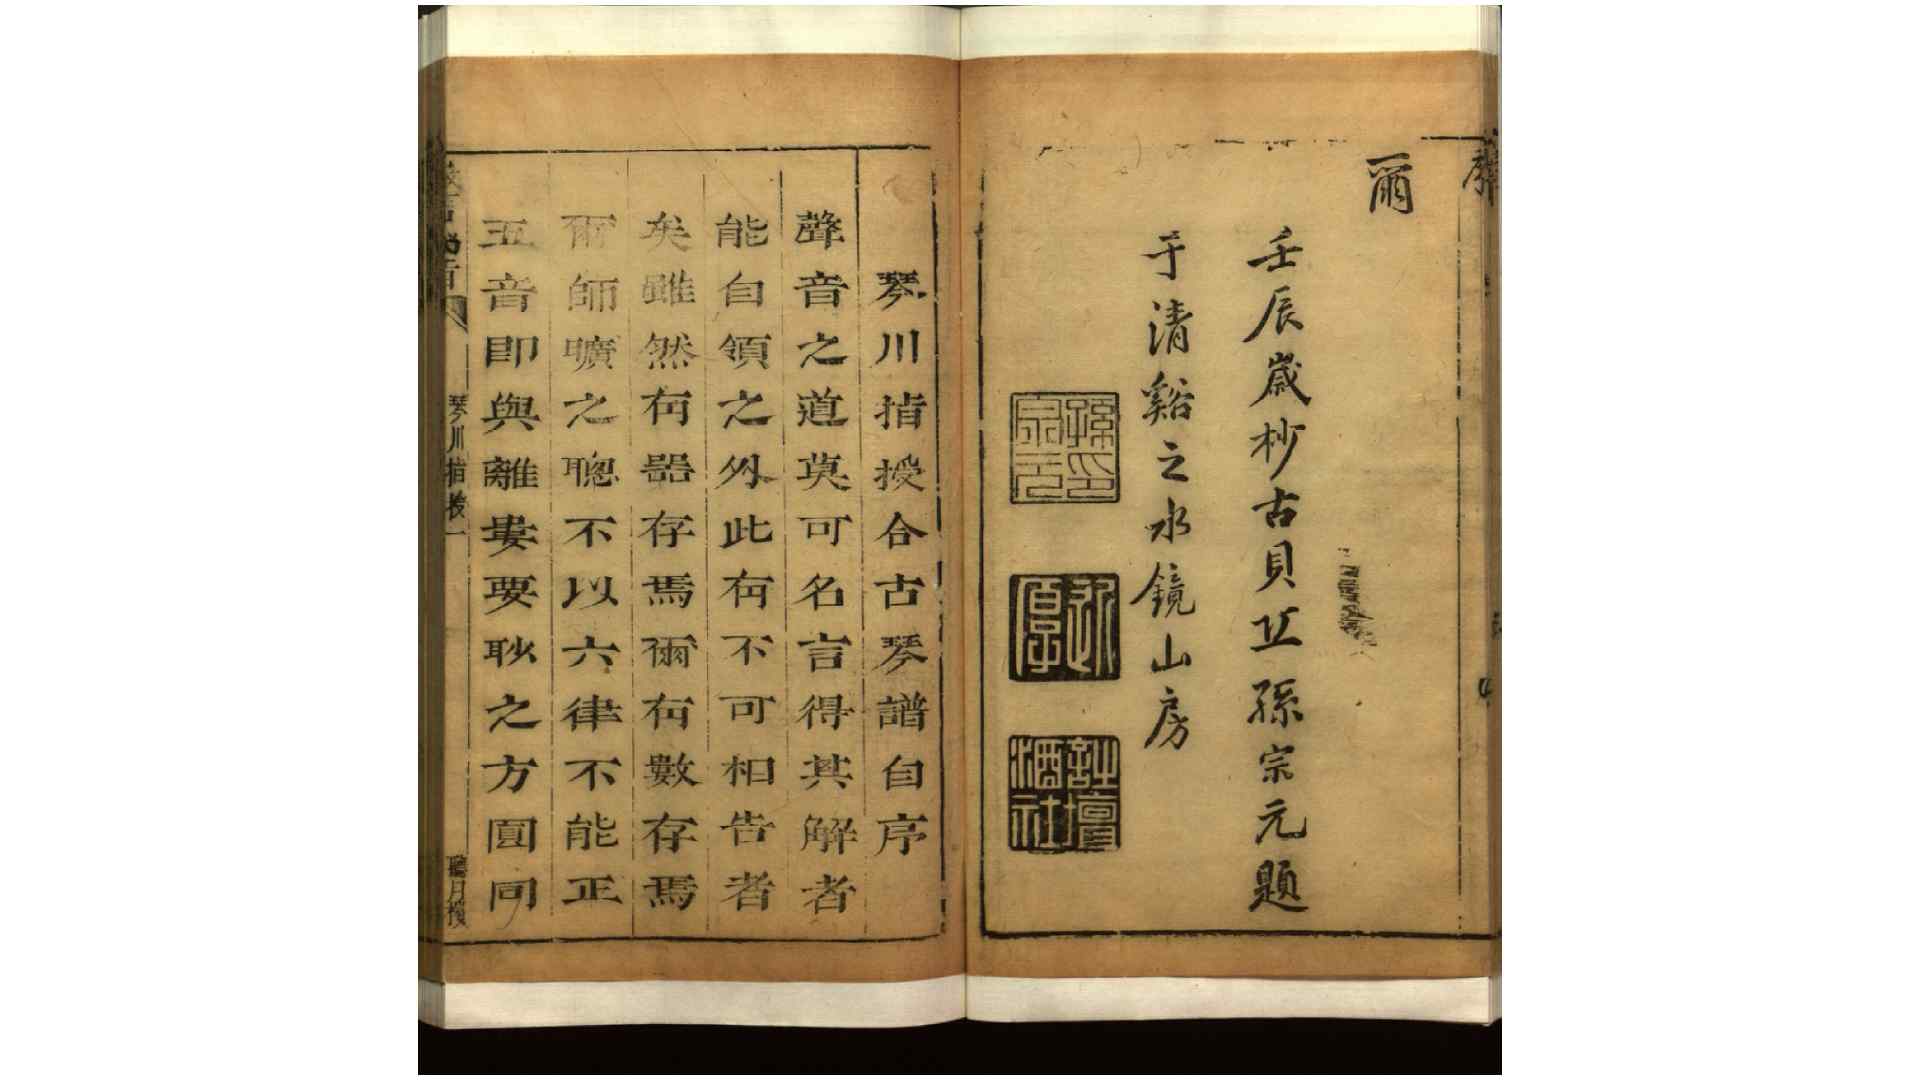 爾
壬辰歲杪古貝丘孫宗元題
于清谿之水鏡山房
孫宗元印
詩壇酒社
琴川指授合古琴譜自序
聲音之道莫可名言得其解者
能自領之外此有不可相告者
矣雖然有器存焉爾有數存焉
爾師曠之聰不以六律不能正
五音即與離婁要眇之方圓同
琴川指授一
聽月樓